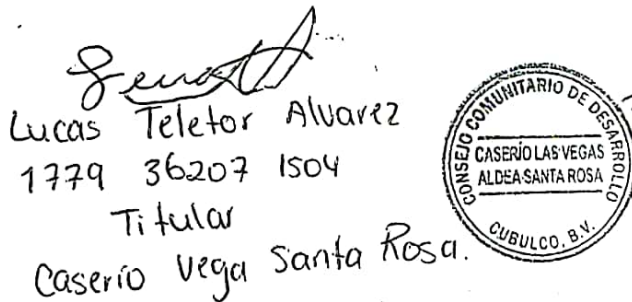 Lucas Teletor Alvarez
1779 36207 1504
Titular
Caserio Vega Santa Rosa.
CONSEJO COMUNITARIO DE DESARROLLO
CASERÍO LAS VEGAS
ALDEA SANTA ROSA
CUBULCO, B.V.